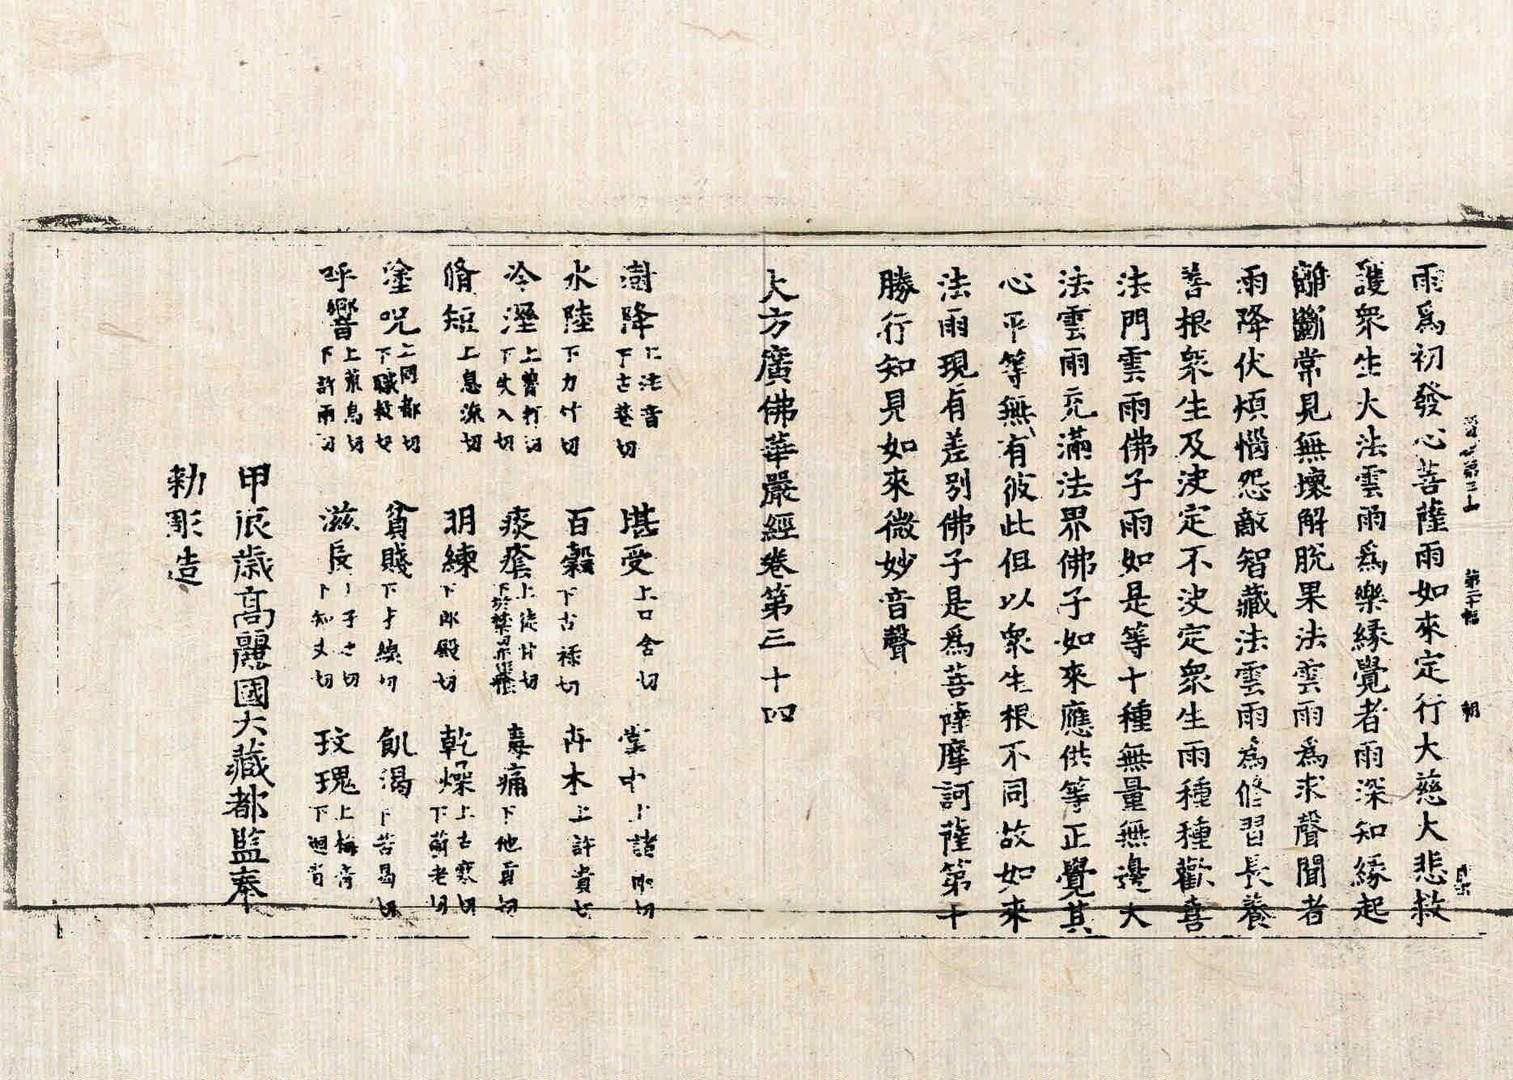 雨為初發心菩薩雨如來定行大慈大悲救
護衆生大法雲雨爲樂緣覺者雨深知緣起
離斷常見無壞解脫果法雲雨為求聲聞者
雨降伏煩惱怨敵智藏法雲雨為修習長養
善根衆生及決定不決定衆生雨種種歡喜
法門雲雨佛子雨如是等十種無量無邊大
法雲雨充滿法界佛子如來應供等正覺其
心平等無有彼此但以衆生根不同故如來
法雨現有差別佛子是爲菩薩摩訶薩第十
勝行知見如來微妙音聲
大方廣佛華嚴經卷第三十四
澍降 上注音 下古巷切 堪受 上口含切
水陸 下力竹切 百穀 下古祿切 卉木 上許貴切
冷溼 下失入切 痰癊 上徒甘切 毒痛
脩短 上息流切 明練 下郎殿切 乾燥 下蘇老切
塗呪 上同都切 下職救切 貧賤 下才線切 飢渴 下苦曷切
呼響 上荒烏切 下許兩切 滋長 下知丈切 玫瑰 上梅音 下迴音
甲辰歲高麗國大藏都監奉
勅彫造